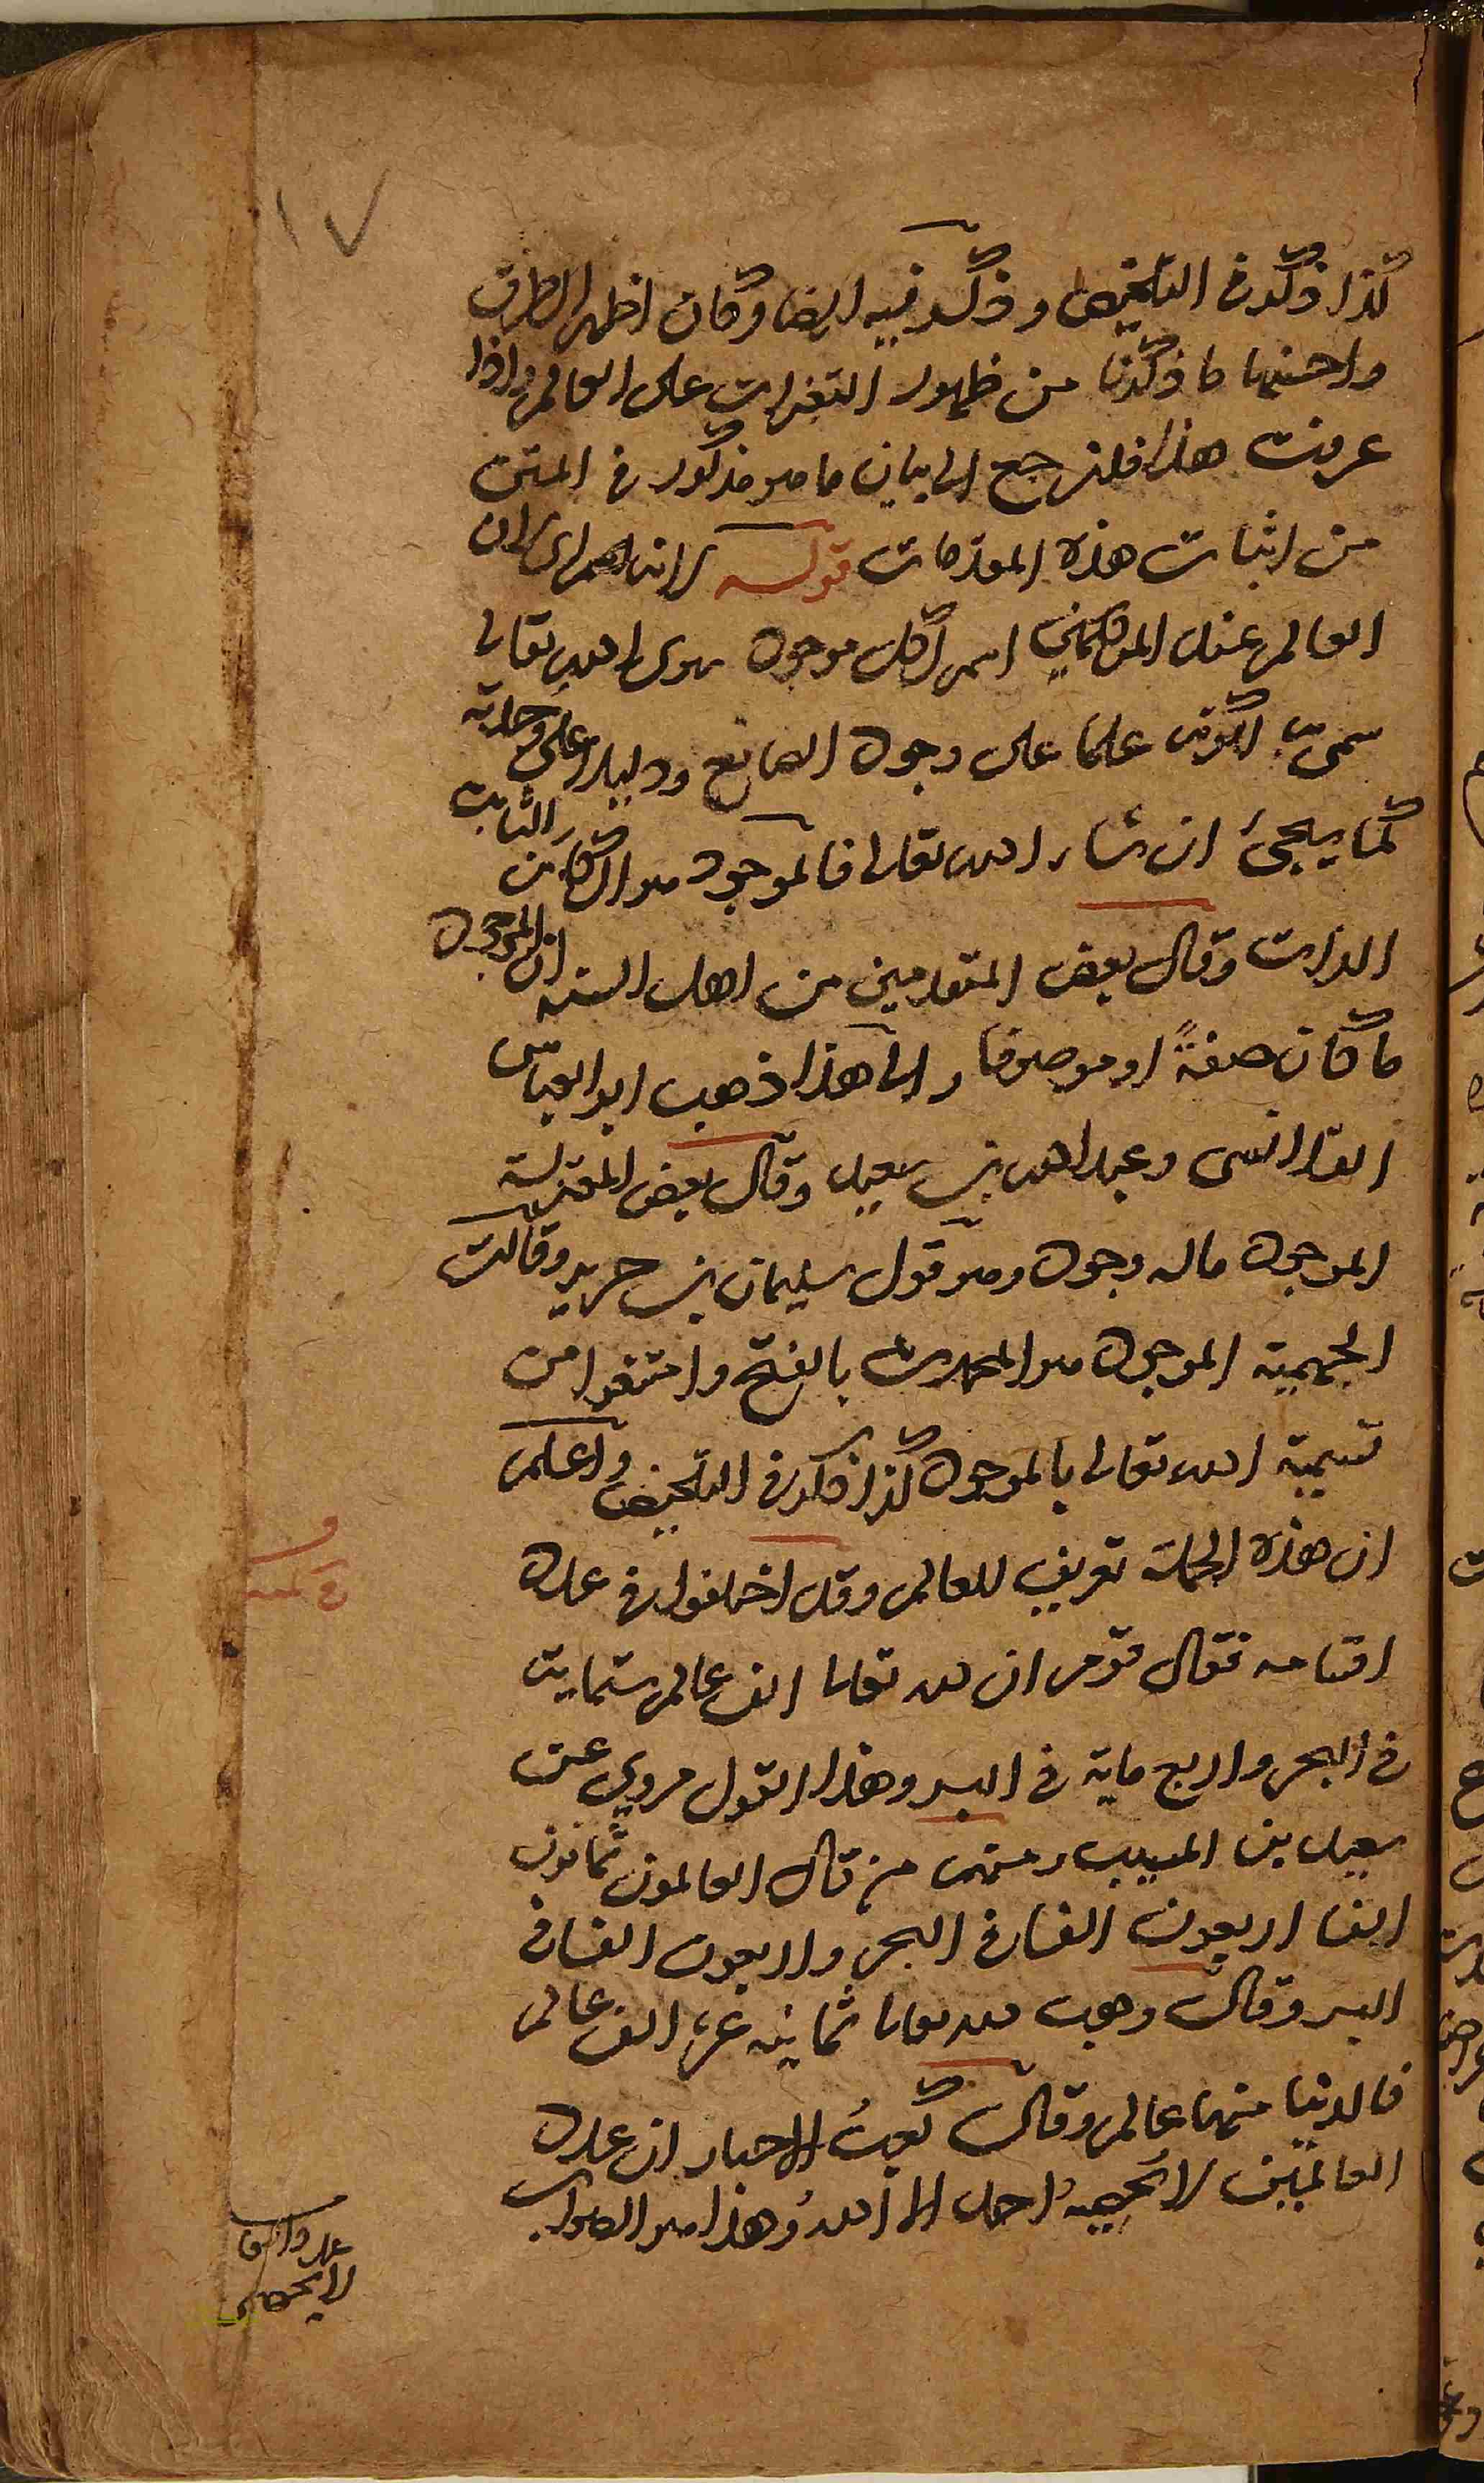 ١٧
كذا ذكر في التلخيص وذكر فيه ايضا وكان اظهر الطرق
واحسنها ما ذكرنا من ظهور التغيرات على العالم واذا
عرفت هذا فلنرجع الى بيان ما هو مذكور في المتن
من اثبات هذه المقدمات قوله لانه اسم اي لان
العالم عند المتكلمين اسم لكل موجود سوى الله تعالى
سمي به لكونه علما على وجود الصانع ودليلا على وحدانيته
كما سيجئ ان شاء الله تعالى فالموجود هو الكائن الثابت
الذات وقال بعض المتقدمين من اهل السنة ان الموجود
ما كان صفةً او موصوفا والى هذا ذهب ابو العباس
القلانسى وعبد الله بن سعيد وقال بعض المعتزلة
الموجود ماله وجود وهو قول سليمان بن جرير وقالت
الجهمية الموجود هو المحدث بالفتح وامتنعوا من
تسمية الله تعالى بالموجود كذا ذكر في التلخيص واعلم
ان هذه الجملة تعريف للعالم وقد اختلفوا في عدد
اقسامه فقال قوم ان لله تعالى الف عالم ستماية
في البحر واربع ماية في البر وهذا القول مروي عن
سعيد بن المسيب ومنهم من قال العالمون ثمانون
الفا اربعون الفا في البحر واربعون الفا في
البر وقال وهب لله تعالى ثمانية عشر الف عالم
فالدنيا منها عالم وقال كعبُ الاحبار ان عدد
العالمين لا يحصيه احد الا اللهُ وهذا هو الصواب
لا يحصى